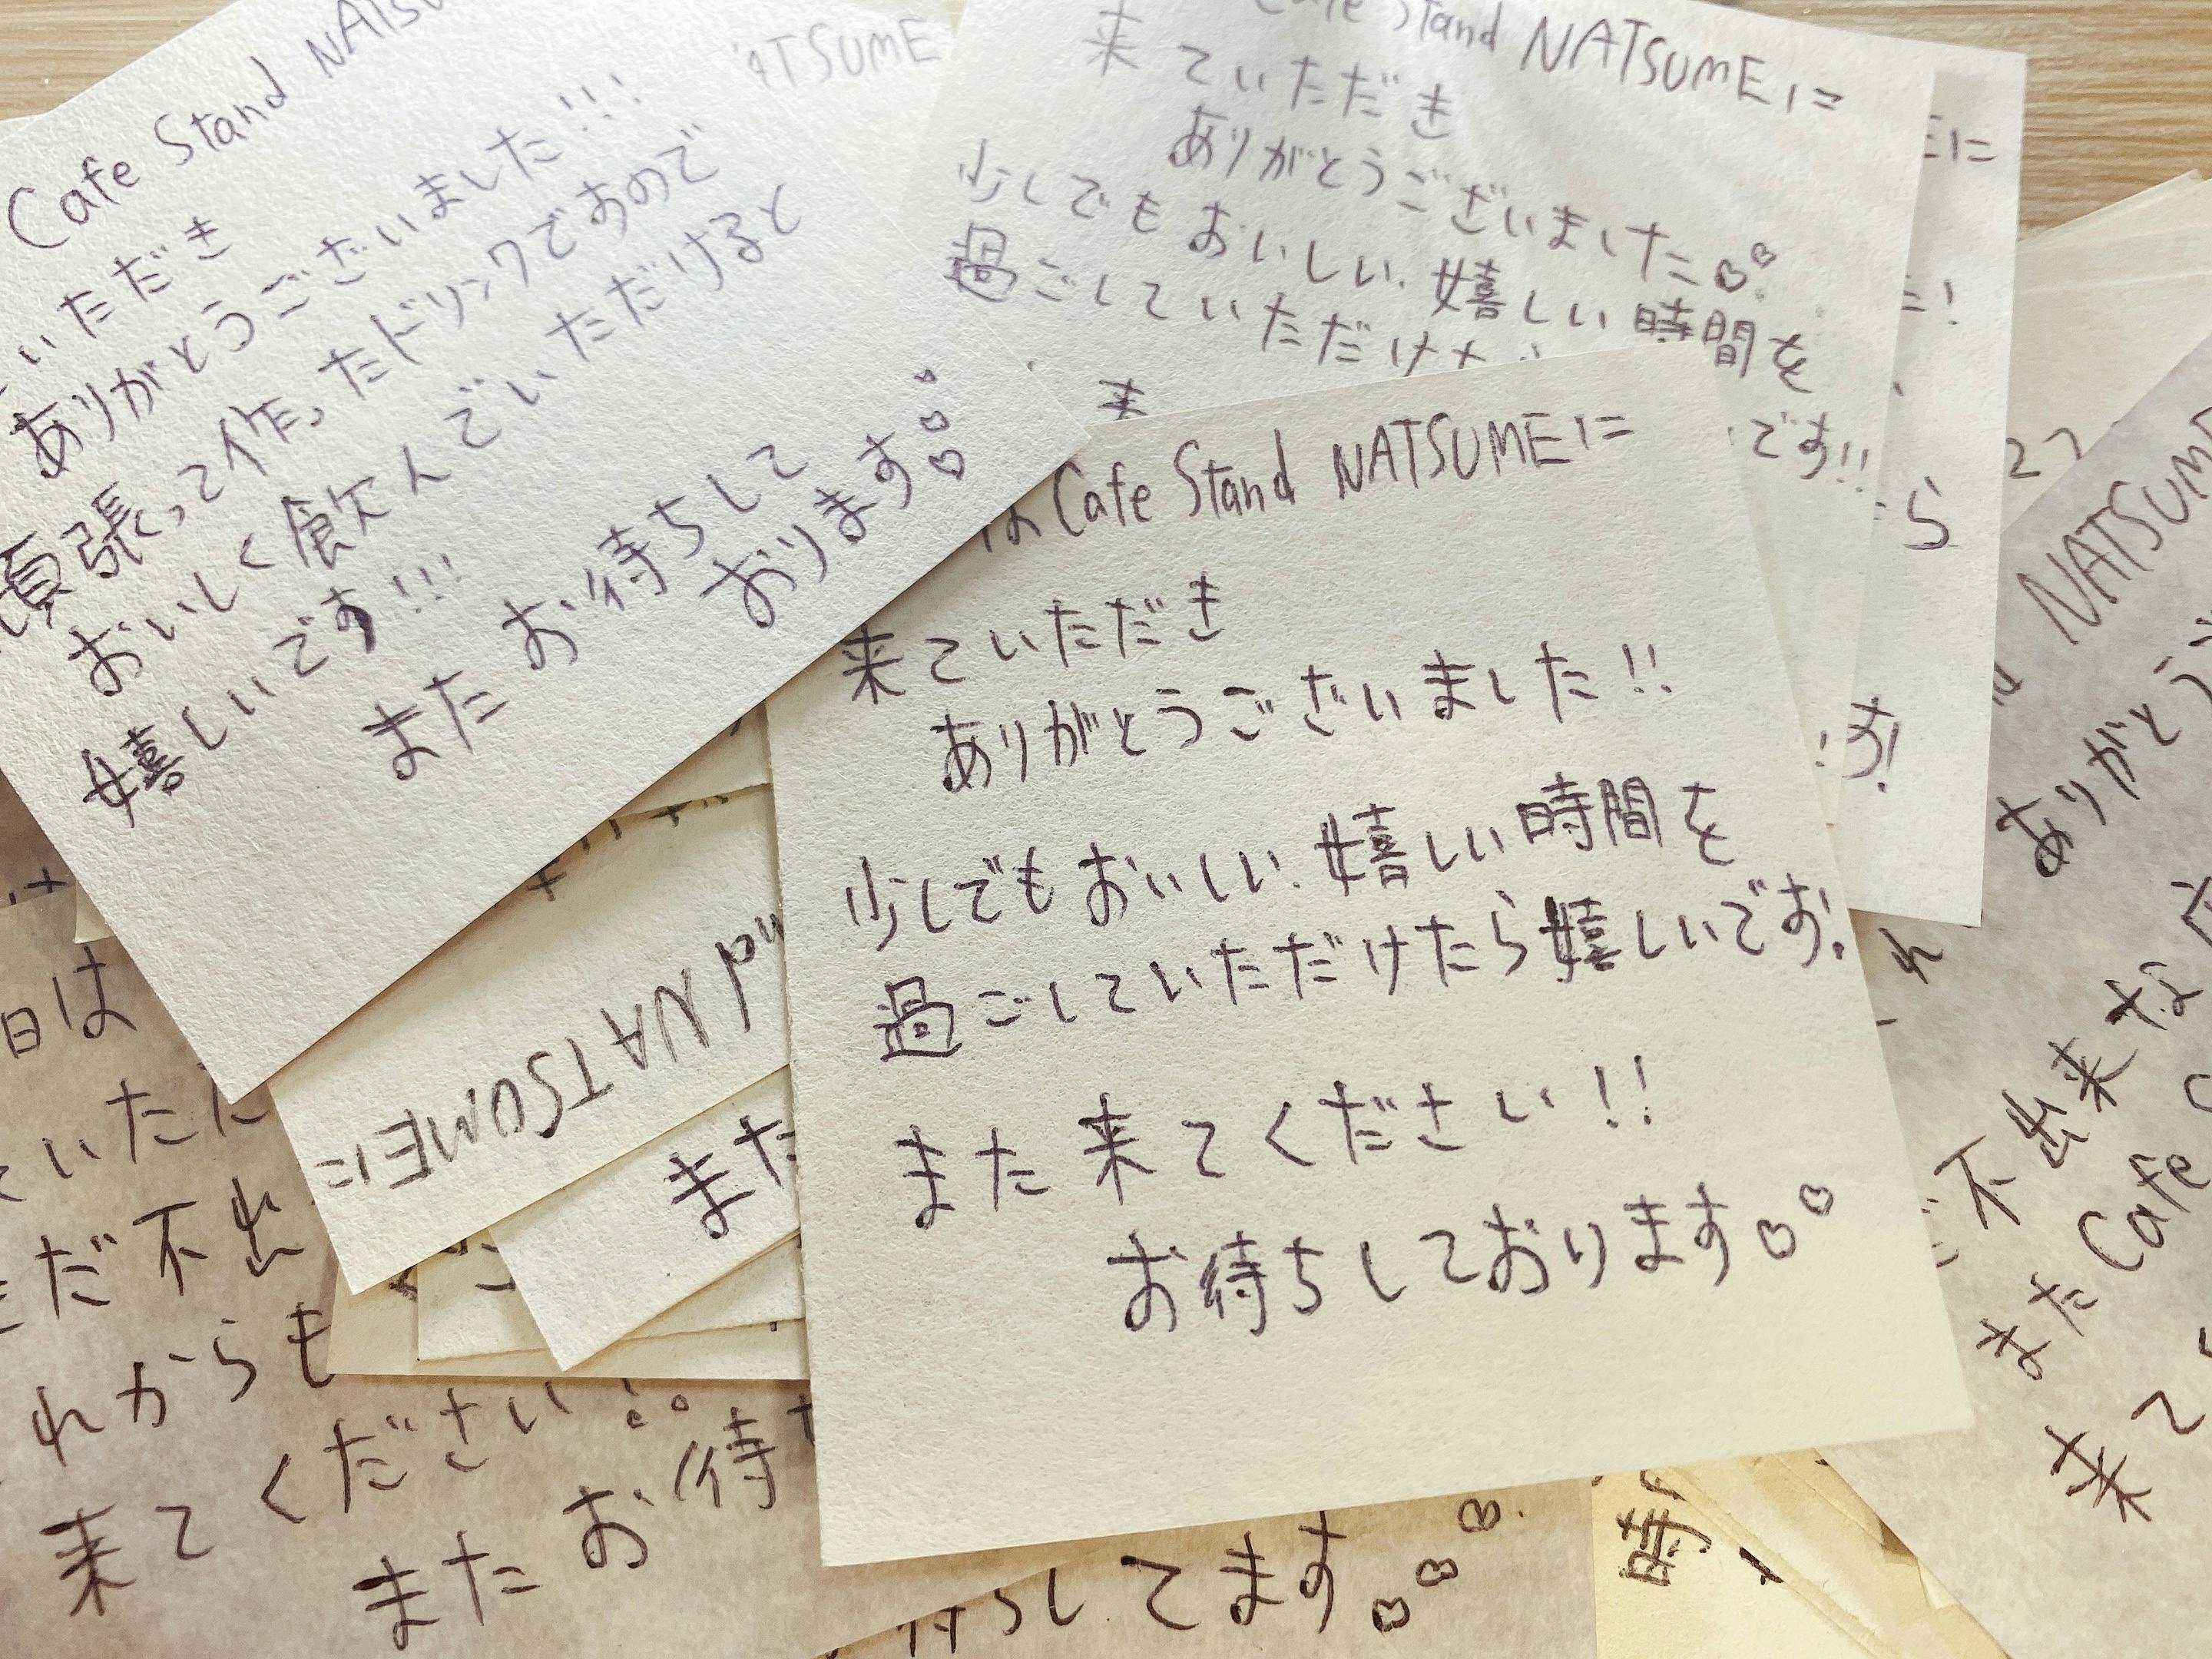 Cafe Stand
いただき
ありがとうございました!!!
頑張って作ったドリンクですので
おいしく飲んでいただけると
嬉しいです!!!
またお待ちして
おります
ATSUME
Cafe Stand NATSUMEに
来ていただき
ありがとうございました
少しでもおいしい、嬉しい時間を
過ごしていただけ
です!!
に
!
ら
す!
は Cafe Stand NATSUMEに
来ていただき
ありがとうございました!!
少しでもおいしい、嬉しい時間を
過ごしていただけたら嬉しいです!
また来てください!!
お待ちしております
NATSUMEに
また
日は
いただ
まだ不出
れからも
来てください
またお待
待ちしてます
時
NATSUME
ありがとう
不出来な
また Cafe
来て